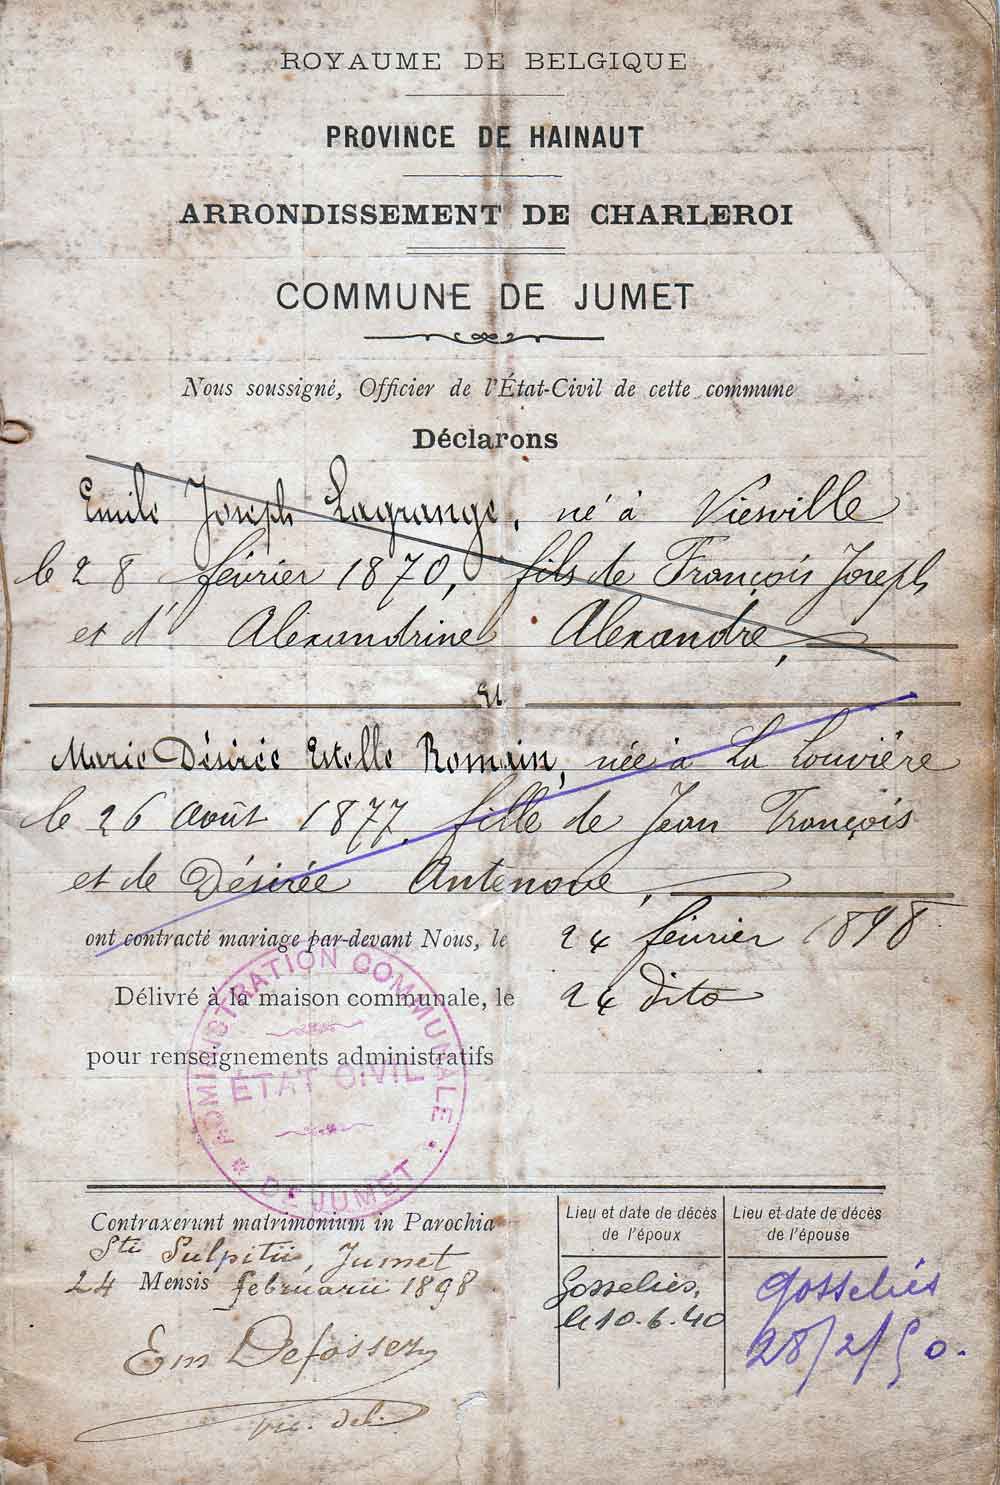 ROYAUME DE BELGIQUE
PROVINCE DE HAINAUT
ARRONDISSEMENT DE CHARLEROI
COMMUNE DE JUMET
Nous soussigné, Officier de l'État-Civil de cette commune
Déclarons
Emile Joseph Lagrange, né à Viesville
le 28 février 1870, fils de François Joseph
et d' Alexandrine Alexandre,
Et
Marie Désirée Estelle Romain, née à La Louvière
le 26 Août 1877, fille de Jean François
et de Désirée Antenove,
ont contracté mariage par-devant Nous, le 24 février 1898
Délivré à la maison communale, le 24 dito
pour renseignements administratifs
ADMINISTRATION COMMUNALE
ÉTAT CIVIL
* DE JUMET *
Contraxerunt matrimonium in Parochia
Sti Sulpitii, Jumet
24 Mensis februarii 1898
Em Defossez
vic. del.
Lieu et date de décès
de l'époux
Gosselies,
le 10.6.40
Lieu et date de décès
de l'épouse
Gosselies
28/2/50.